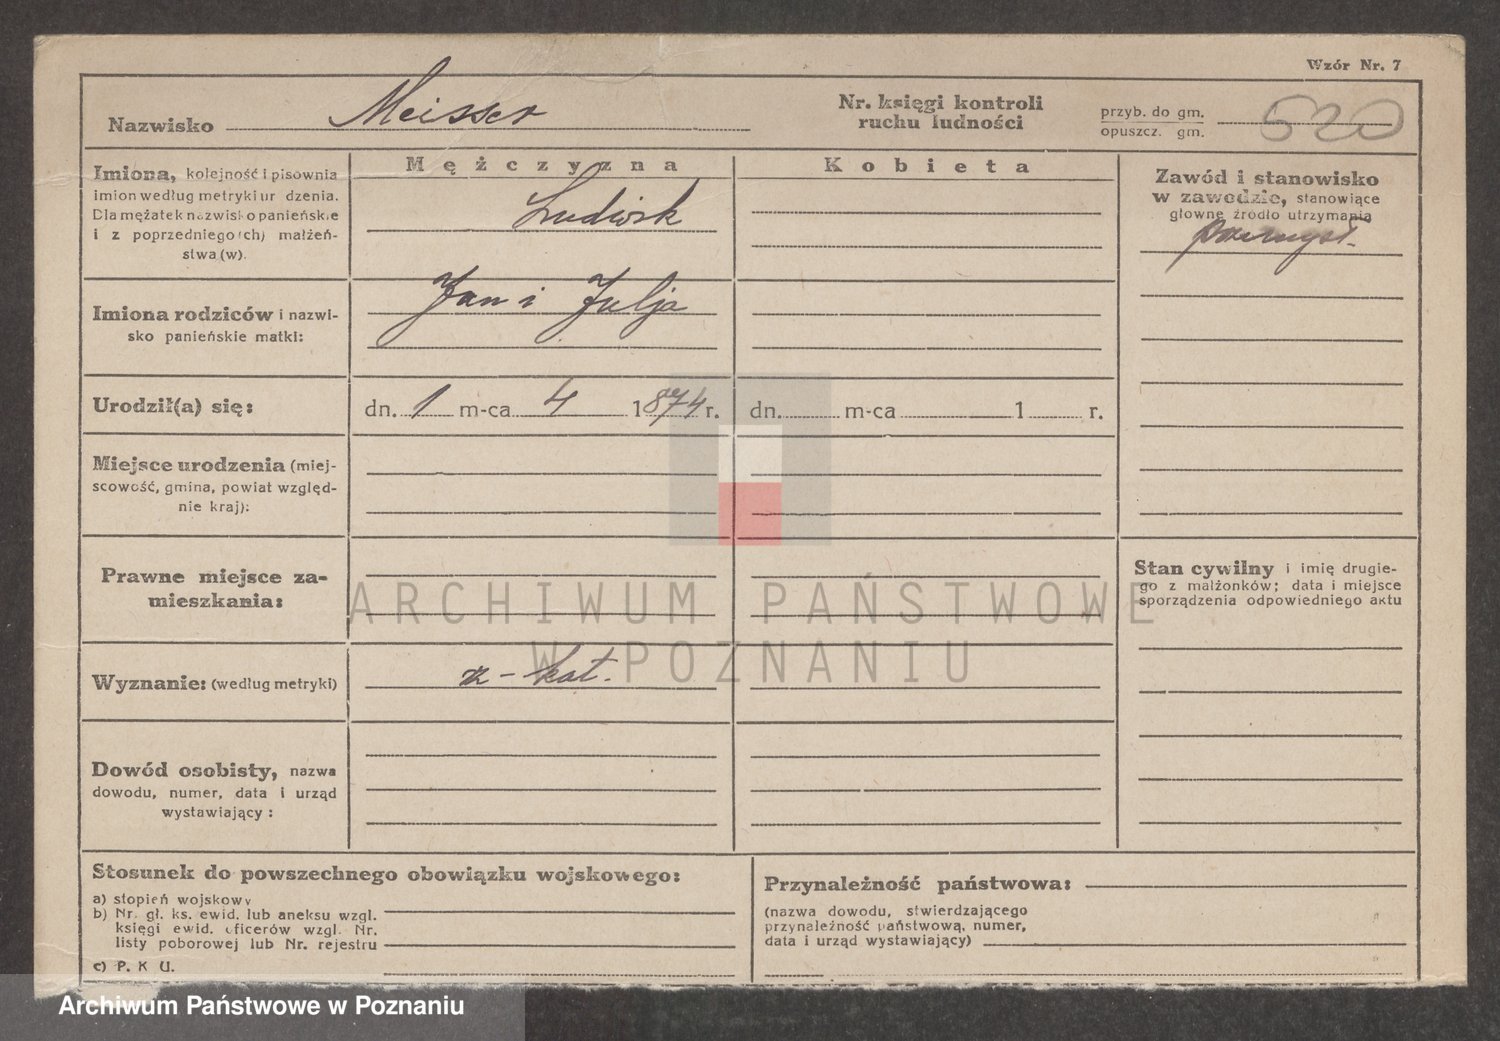 Wzór Nr. 7
Nazwisko Meisser
Nr. księgi kontroli
ruchu ludności
przyb. do gm.
opuszcz. gm.
520
Mężczyzna
Kobieta
Imiona, kolejność i pisownia
imion według metryki ur dzenia.
Dla mężatek nazwisko panieńskie
i z poprzedniego(ch) małżeń-
stwa (w).
Ludwik
Zawód i stanowisko
w zawodzie, stanowiące
główne źródło utrzymania
przemysł.
Imiona rodziców i nazwi-
sko panieńskie matki:
Jan i Julja
Urodził(a) się:
dn. 1 m-ca 4 1874 r.
dn. m-ca 1 r.
Miejsce urodzenia (miej-
scowość, gmina, powiat względ-
nie kraj):
Prawne miejsce za-
mieszkania:
Stan cywilny i imię drugie-
go z małżonków; data i miejsce
sporządzenia odpowiedniego aktu
ARCHIWUM PAŃSTWOWE
W POZNANIU
Wyznanie: (według metryki)
rz-kat.
Dowód osobisty, nazwa
dowodu, numer, data i urząd
wystawiający:
Stosunek do powszechnego obowiązku wojskowego:
a) stopień wojskowy
b) Nr. gł. ks. ewid. lub aneksu wzgl.
księgi ewid. oficerów wzgl. Nr.
listy poborowej lub Nr. rejestru
c) P. K U.
Przynależność państwowa:
(nazwa dowodu, stwierdzającego
przynależność państwową, numer,
data i urząd wystawiający)
Archiwum Państwowe w Poznaniu